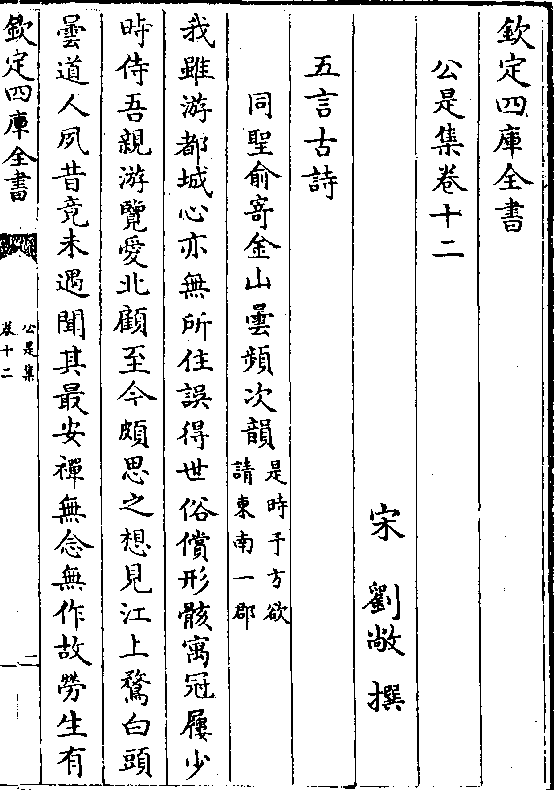 欽定四庫全書
公是集卷十二
宋 劉敞 撰
五言古詩
同聖俞寄金山曇頻次韻是時予方欲請東南一郡
我雖游都城心亦無所住誤得世俗償形骸寓冠屨少
時侍吾親游覽愛北顧至今頗思之想見江上鶩白頭
曇道人夙昔竟未遇聞其最安禪無念無作故勞生有
欽定四庫全書
公是集
卷十二
一